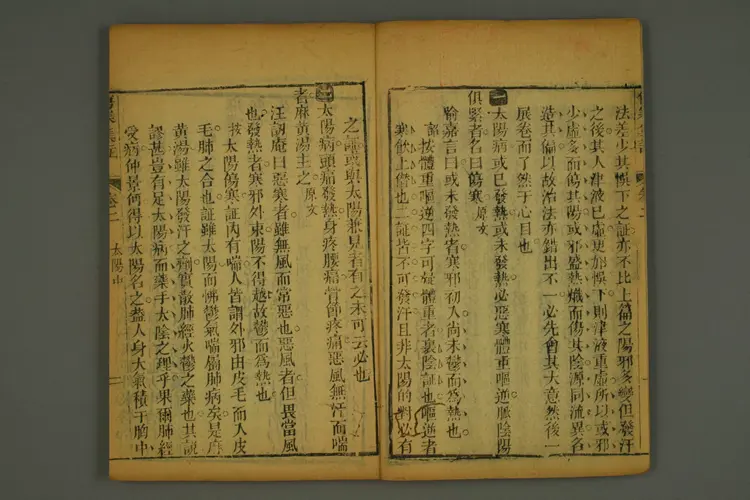 法差少其悞下之証亦不比上篇之陽邪多變但發汗
之後其人津液已虛更加悞下則津液重虛所以或邪
少虛多而傷其陽或邪盛熱熾而傷其陰源同流異名
造其偏以故治法亦錯出不一必先會其大意然後一
展卷而了然于心目也
一太陽病或已發熱或未發熱必惡寒體重嘔逆脈陰陽
俱緊者名曰傷寒 原文
喻嘉言曰或未發熱者寒邪初入尚未鬱而為熱也
按體重嘔逆四字可疑體重者裏陰証也嘔逆者
寒飲上僭也二証皆不可發汗且非太陽的對必有
之或與太陽兼見者有之未可云必也
太陽病頭痛發熱身疼腰痛骨節疼痛惡風無汗而喘
者麻黃湯主之 原文
汪訒庵曰惡寒者雖無風而常惡也惡風者但畏當風
也發熱者寒邪外束陽不得越故鬱而為熱也
按太陽傷寒証內有喘人皆謂外邪由皮毛而入皮
毛肺之合也証雖太陽而怫鬱氣喘偏肺病矣是麻
黃湯雖太陽發汗之劑實散肺經火鬱之藥也其說
謬甚豈有足太陽病而藥手太陰之理乎果爾肺經
受病仲景何得以太陽名之蓋人身大氣積于胸中
卷二
太陽中
卷二